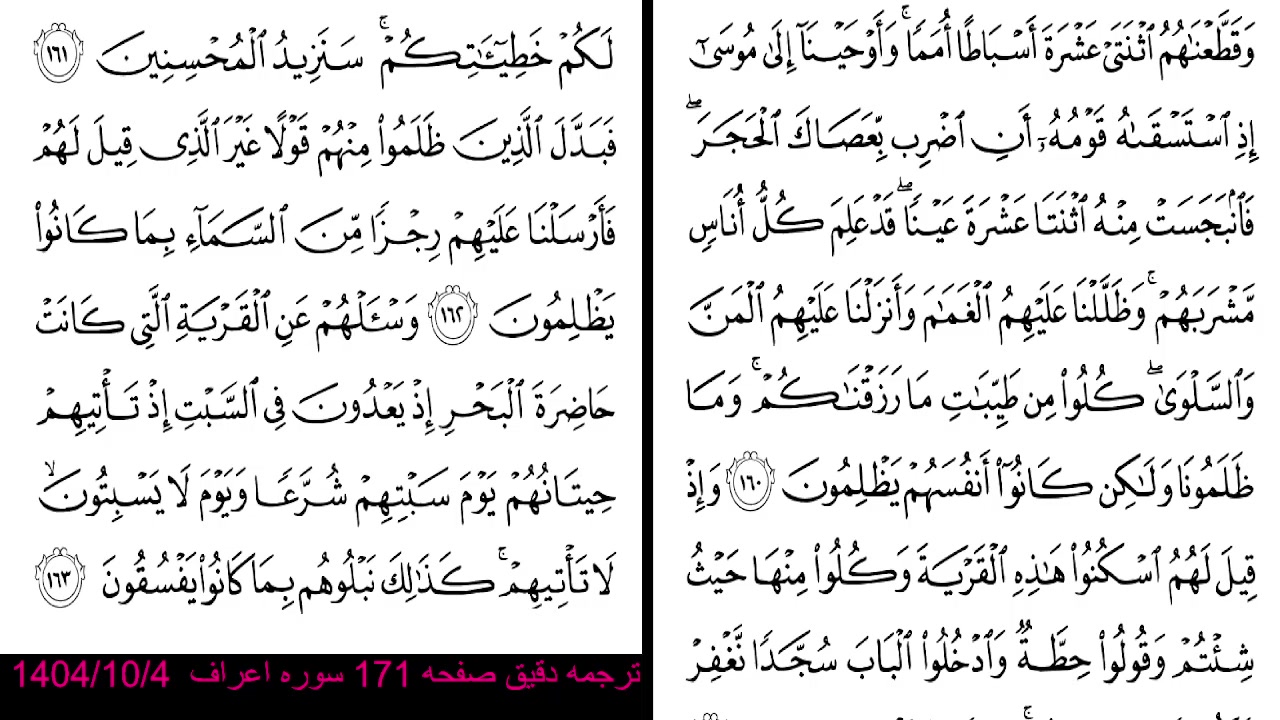 وَقَطَّعْنَٰهُمُ ٱثْنَتَىْ عَشْرَةَ أَسْبَاطًا أُمَمًا ۚ وَأَوْحَيْنَآ إِلَىٰ مُوسَىٰٓ
إِذِ ٱسْتَسْقَىٰهُ قَوْمُهُۥٓ أَنِ ٱضْرِب بِّعَصَاكَ ٱلْحَجَرَ ۖ
فَٱنۢبَجَسَتْ مِنْهُ ٱثْنَتَا عَشْرَةَ عَيْنًا ۖ قَدْ عَلِمَ كُلُّ أُنَاسٍ
مَّشْرَبَهُمْ ۚ وَظَلَّلْنَا عَلَيْهِمُ ٱلْغَمَٰمَ وَأَنزَلْنَا عَلَيْهِمُ ٱلْمَنَّ
وَٱلسَّلْوَىٰ ۖ كُلُوا۟ مِن طَيِّبَٰتِ مَا رَزَقْنَٰكُمْ ۚ وَمَا
ظَلَمُونَا وَلَٰكِن كَانُوٓا۟ أَنفُسَهُمْ يَظْلِمُونَ ١٦٠ وَإِذْ
قِيلَ لَهُمُ ٱسْكُنُوا۟ هَٰذِهِ ٱلْقَرْيَةَ وَكُلُوا۟ مِنْهَا حَيْثُ
شِئْتُمْ وَقُولُوا۟ حِطَّةٌ وَٱدْخُلُوا۟ ٱلْبَابَ سُجَّدًا نَّغْفِرْ
لَكُمْ خَطِيٓـَٰٔتِكُمْ ۚ سَنَزِيدُ ٱلْمُحْسِنِينَ ١٦١
فَبَدَّلَ ٱلَّذِينَ ظَلَمُوا۟ مِنْهُمْ قَوْلًا غَيْرَ ٱلَّذِى قِيلَ لَهُمْ
فَأَرْسَلْنَا عَلَيْهِمْ رِجْزًا مِّنَ ٱلسَّمَآءِ بِمَا كَانُوا۟
يَظْلِمُونَ ١٦٢ وَسْـَٔلْهُمْ عَنِ ٱلْقَرْيَةِ ٱلَّتِى كَانَتْ
حَاضِرَةَ ٱلْبَحْرِ إِذْ يَعْدُونَ فِى ٱلسَّبْتِ إِذْ تَأْتِيهِمْ
حِيتَانُهُمْ يَوْمَ سَبْتِهِمْ شُرَّعًا وَيَوْمَ لَا يَسْبِتُونَ ۙ
لَا تَأْتِيهِمْ ۚ كَذَٰلِكَ نَبْلُوهُم بِمَا كَانُوا۟ يَفْسُقُونَ ١٦٣
ترجمه دقیق صفحه 171 سوره اعراف 1404/10/4